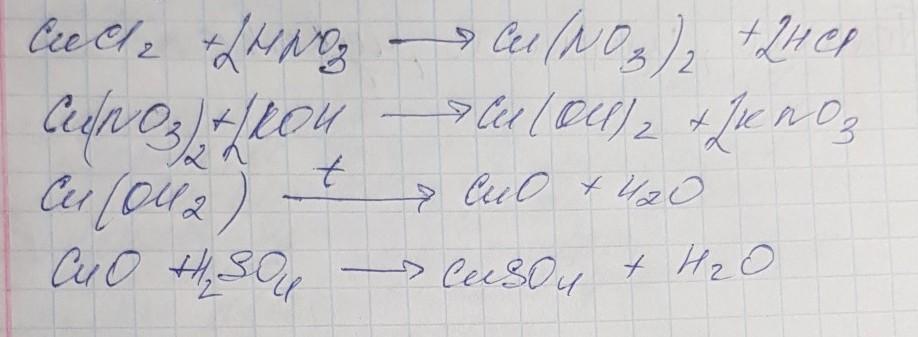 CuCl₂ + 2HNO₃ ⟶ Cu(NO₃)₂ + 2HCl
Cu(NO₃)₂ + 2KOH ⟶ Cu(OH)₂ + 2KNO₃
Cu(OH₂) t⟶ CuO + H₂O
CuO + H₂SO₄ ⟶ CuSO₄ + H₂O